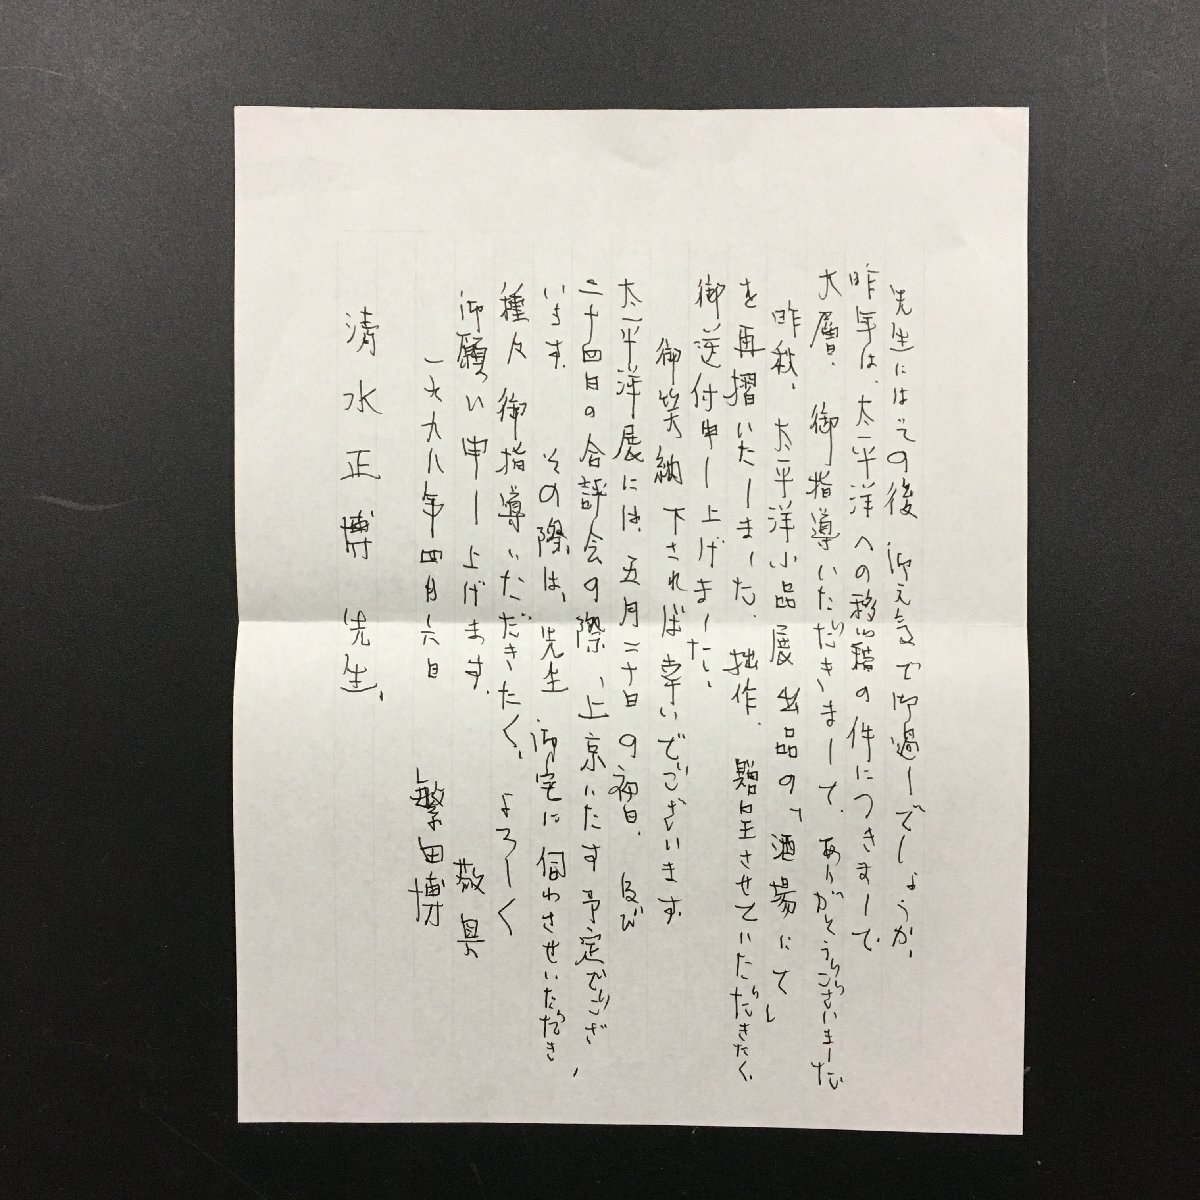 先生にはその後 御元気で御過しでしょうか、
昨年は、太平洋への移籍の件につきまして、
大層、御指導いただきまして、ありがとうございました
昨秋、太平洋小品展出品の「酒場にて」
を再摺いたしました、拙作、贈呈させていただきたく、
御送付申し上げました、
御笑納下されば幸いでございます、
太平洋展には、五月二十日の初日、及び
二十四日の合評会の際、上京いたす予定でござ
います、その際は、先生 御宅に伺わさせいただき、
種々御指導いただきたく、よろしく
御願い申し上げます、 敬具
一九九八年四月六日 繁田博
清水正博先生、